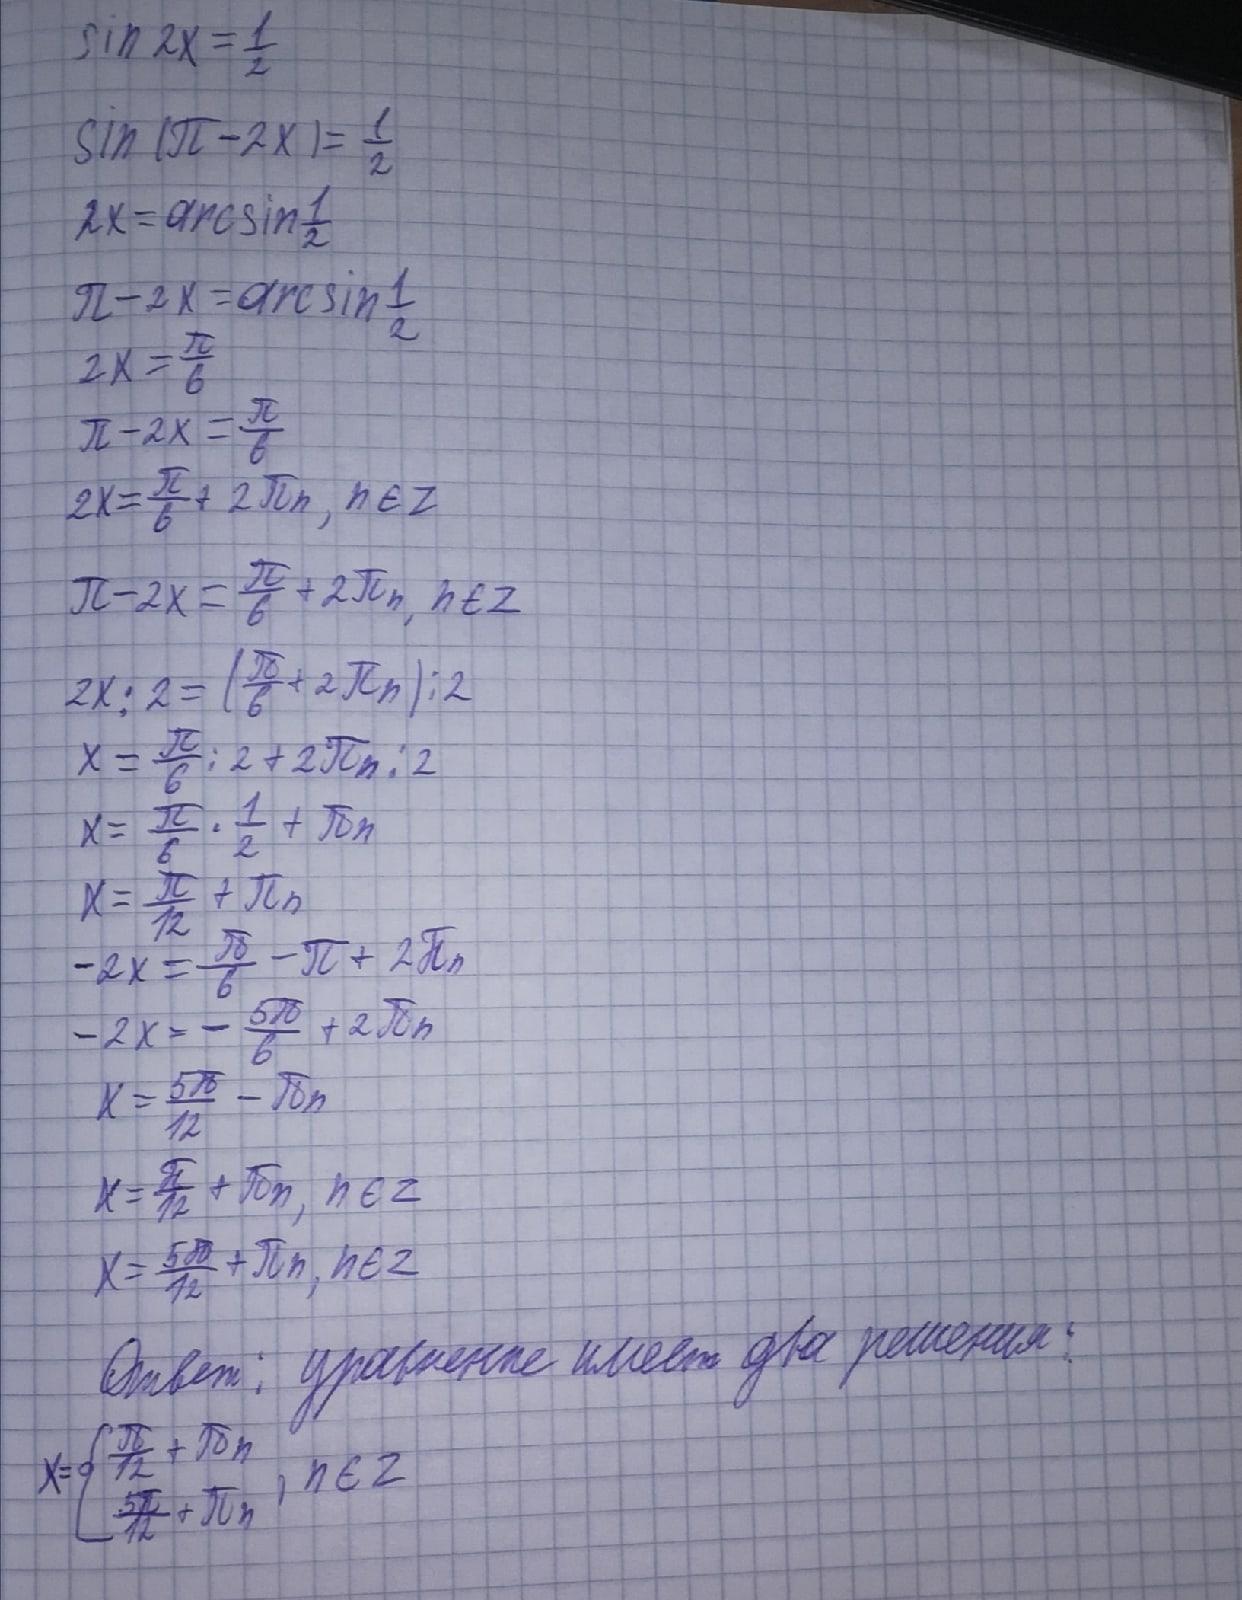 sin 2x = 1/2
sin (π - 2x) = 1/2
2x = arcsin 1/2
π - 2x = arcsin 1/2
2x = π/6
π - 2x = π/6
2x = π/6 + 2πn, n ∈ Z
π - 2x = π/6 + 2πn, n ∈ Z
2x : 2 = (π/6 + 2πn) : 2
x = π/6 : 2 + 2πn : 2
x = π/6 · 1/2 + πn
x = π/12 + πn
-2x = π/6 - π + 2πn
-2x = - 5π/6 + 2πn
x = 5π/12 - πn
x = π/12 + πn, n ∈ Z
x = 5π/12 + πn, n ∈ Z
Ответ: уравнение имеет два решения:
x = { π/12 + πn
5π/12 + πn , n ∈ Z